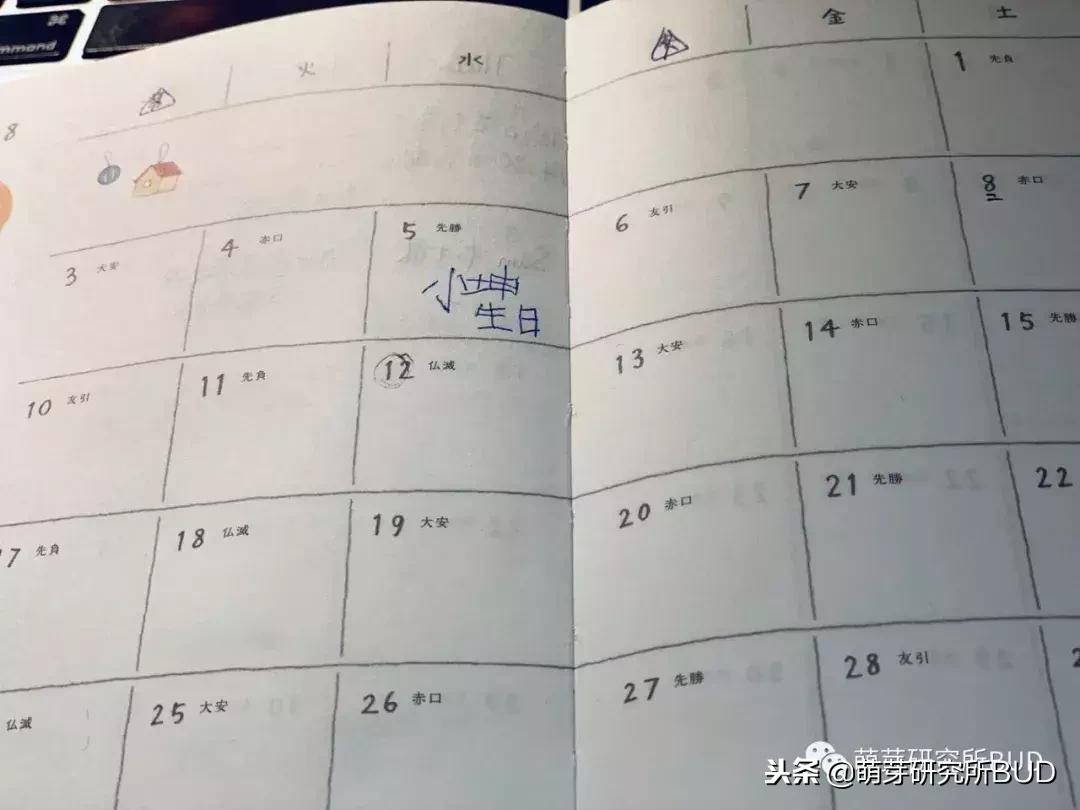 ⌘
mmand
火
水
金
土
8
1 先負
3 大安
4 赤口
5 先勝
小坤
生日
6 友引
7 大安
8 赤口
10 友引
11 先負
12 仏滅
13 大安
14 赤口
15 先勝
17 先負
18 仏滅
19 大安
20 赤口
21 先勝
22
仏滅
25 大安
26 赤口
27 先勝
28 友引
2
萌芽研究所BUD
头条 @萌芽研究所BUD